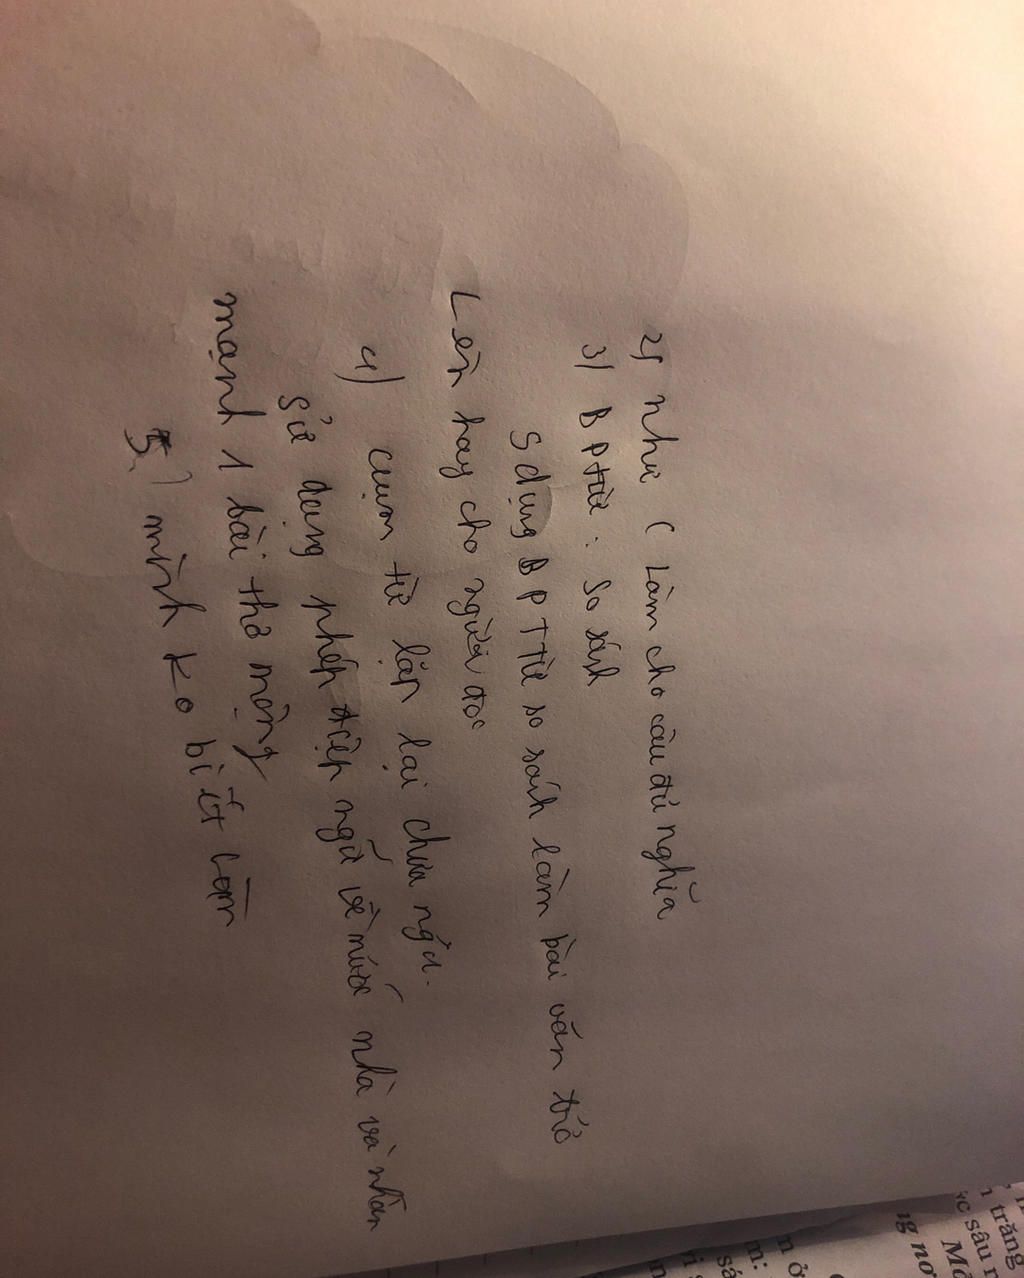 2) như ( Làm cho câu đủ nghĩa
3) BPtừ : So sánh
S dụng BPTTừ so sánh làm bài văn trở
Lên hay cho người đọc
4) cụm từ lặp lại chưa ngủ.
Sử dụng phép điệp ngữ về nước nhà và nhần
mạnh 1 bài thơ mộng
5) mình ko biết Làm
trăng
sâu